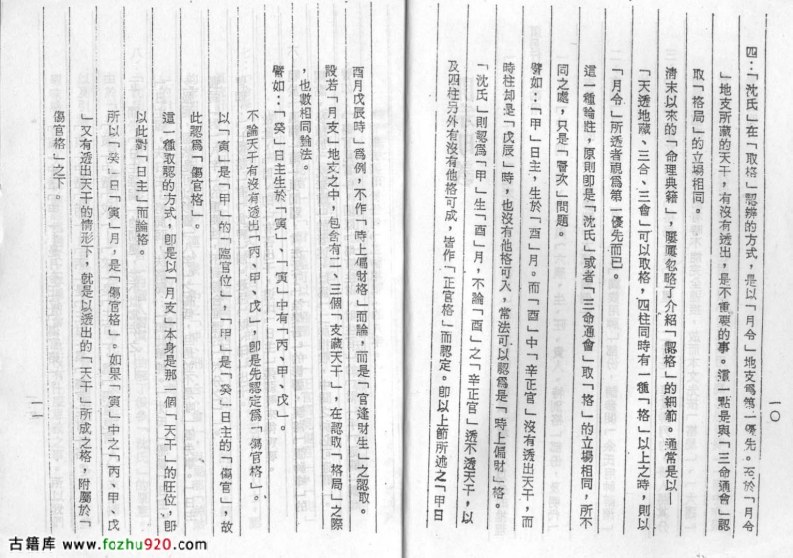 一〇
四：「沈氏」在「取格」認辨的方式，是以「月令」地支為第一優先。至於「月令
」地支所藏的天干，有沒有透出，是不重要的事。這一點是與「三命通會」認
取「格局」的立場相同。
清末以來的「命理典籍」，屢屢忽略了介紹「認格」的細節。通常是以—
「天透地藏、三合、三會」可以取格，四柱同時有一種「格」以上之時，則以
「月令」所透者視為第一優先而已。
這一種論性，原則即是「沈氏」或者「三命通會」取「格」的立場相同，所不
同之處，只是「層次」問題。
譬如：「甲」日主，生於「酉」月。而「酉」中「辛正官」沒有透出天干，而
時柱却是「戊辰」時，也沒有他格可入，常法可以認為是「時上偏財」格。
「沈氏」則認為「甲」生「酉」月，不論「酉」之「辛正官」透不透天干，以
及四柱另外有沒有他格可成，皆作「正官格」而認定。即以上節所述之「甲日
酉月戊辰時」為例，不作「時上偏財格」而論，而是「官逢財生」之認取。
設若「月支」地支之中，包含有二、三個「支藏天干」，在認取「格局」之際
，也數相同論法。
譬如：「癸」日主生於「寅」，「寅」中有「丙、甲、戊」。
不論天干有沒有透出「丙、甲、戊」，即是先認定為「傷官格」。
以「寅」是「甲」的「臨官位」，「甲」是「癸」日主的「傷官」，故
此認為「傷官格」。
這一種取認的方式，即是以「月支」本身是那一個「天干」的旺位，即
以此對「日主」而論格。
所以「癸」日「寅」月，是「傷官格」。如果「寅」中之「丙、甲、戊
」又有透出天干的情形下，就是以透出的「天干」所成之格，附屬於「
傷官格」之下。
一一
古籍库 www.fozhu920.com